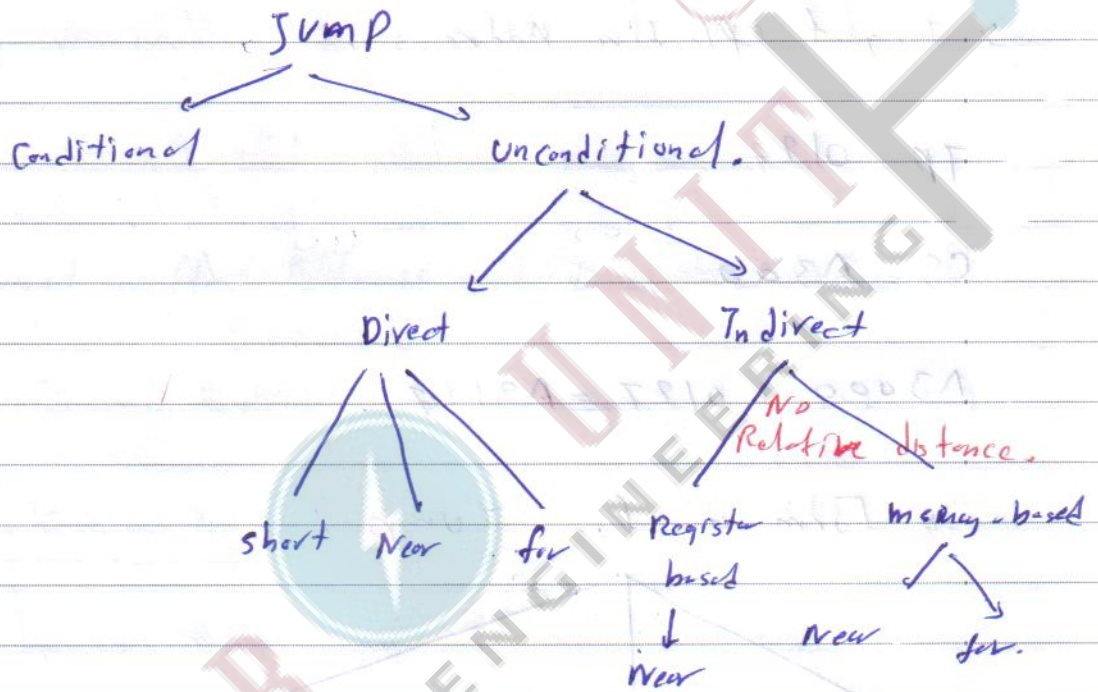 Jump
Conditional
Unconditional.
Direct
Indirect
No
Relative distance.
short
Near
far
Register
based
memory-based
Near
Near
far.
UNIT
ENGINEERING